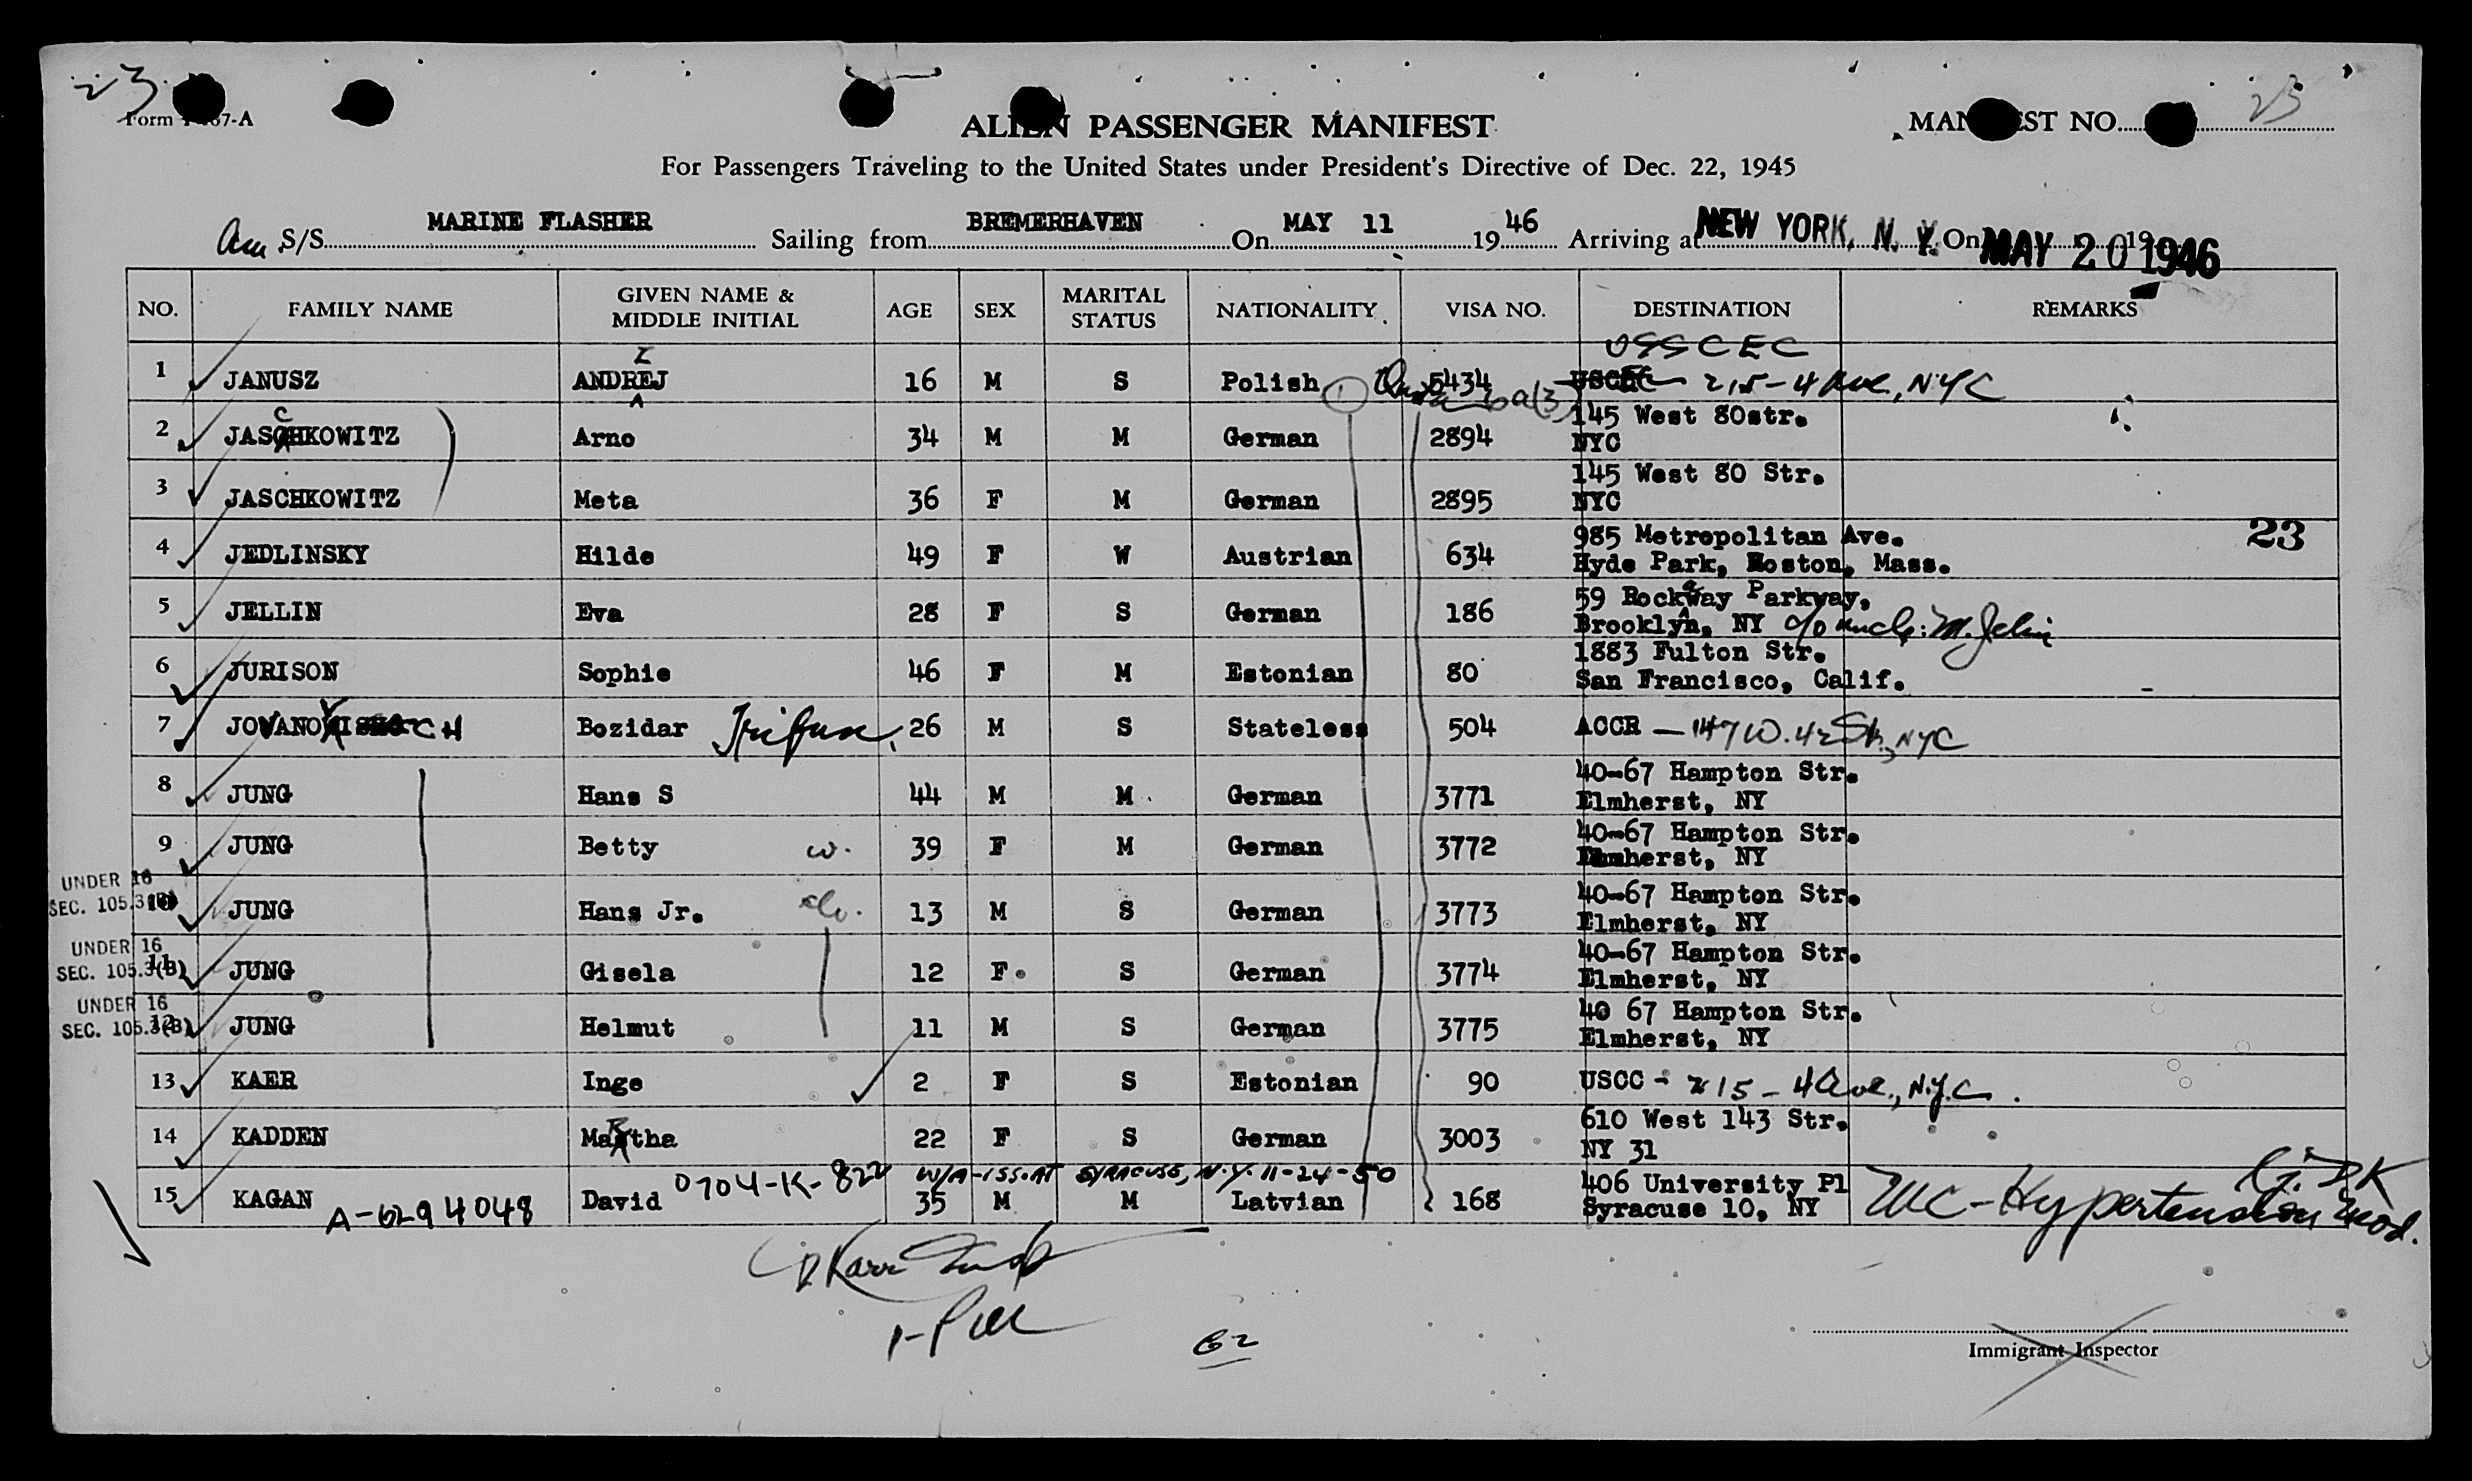 23
23
Form I-467-A
ALIEN PASSENGER MANIFEST
MANIFEST NO.
For Passengers Traveling to the United States under President's Directive of Dec. 22, 1945
Am S/S MARINE FLASHER Sailing from BREMERHAVEN On MAY 11 1946 Arriving at NEW YORK, N. Y. On MAY 20 1946
NO. FAMILY NAME GIVEN NAME & MIDDLE INITIAL AGE SEX MARITAL STATUS NATIONALITY VISA NO. DESTINATION REMARKS
USCCEC
1 JANUSZ ANDREJ 16 M S Polish 5434 215-4 Ave., NYC
Z
2 JASCHKOWITZ Arno 34 M M German 2894 145 West 80str. NYC
3 JASCHKOWITZ Meta 36 F M German 2895 145 West 80 Str. NYC
23
4 JEDLINSKY Hilde 49 F W Austrian 634 985 Metropolitan Ave. Hyde Park, Boston, Mass.
5 JELLIN Eva 28 F S German 186 59 Rockaway Parkway, Brooklyn, NY c/o uncle: M. Jelin
6 JURISON Sophie 46 F M Estonian 80 1883 Fulton Str. San Francisco, Calif.
7 JOVANOVICH Bozidar Trifun 26 M S Stateless 504 ACCR - 147 W. 42 St., NYC
8 JUNG Hans S 44 M M German 3771 40-67 Hampton Str. Elmherst, NY
9 JUNG Betty w. 39 F M German 3772 40-67 Hampton Str. Elmherst, NY
UNDER 16
SEC. 105.3(B)
10 JUNG Hans Jr. ch. 13 M S German 3773 40-67 Hampton Str. Elmherst, NY
UNDER 16
SEC. 105.3(B)
11 JUNG Gisela 12 F S German 3774 40-67 Hampton Str. Elmherst, NY
UNDER 16
SEC. 105.3(B)
12 JUNG Helmut 11 M S German 3775 40 67 Hampton Str. Elmherst, NY
13 KAER Inge 2 F S Estonian 90 USCC - 215-4 Ave., N.Y.C.
14 KADDEN Martha 22 F S German 3003 610 West 143 Str. NY 31
0704-K-822 W/A-ISS. AT SYRACUSE, N.Y. 11-24-50
15 KAGAN A-6294048 David 35 M M Latvian 168 406 University Pl Syracuse 10, NY MC-Hypertension mod.
62
Immigrant Inspector